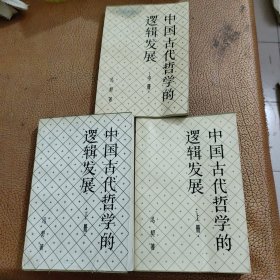 中国古代哲学的
逻辑发展
中册
冯契著
中国古代哲学的
逻辑发展
册
冯契著
中国古代哲学的
逻辑发展
上册
冯契著